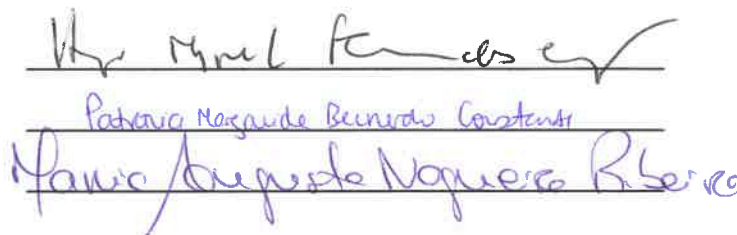 Miguel
Patrícia Margarida Bernardo Constante
Maria Augusta Nogueira Ribeiro